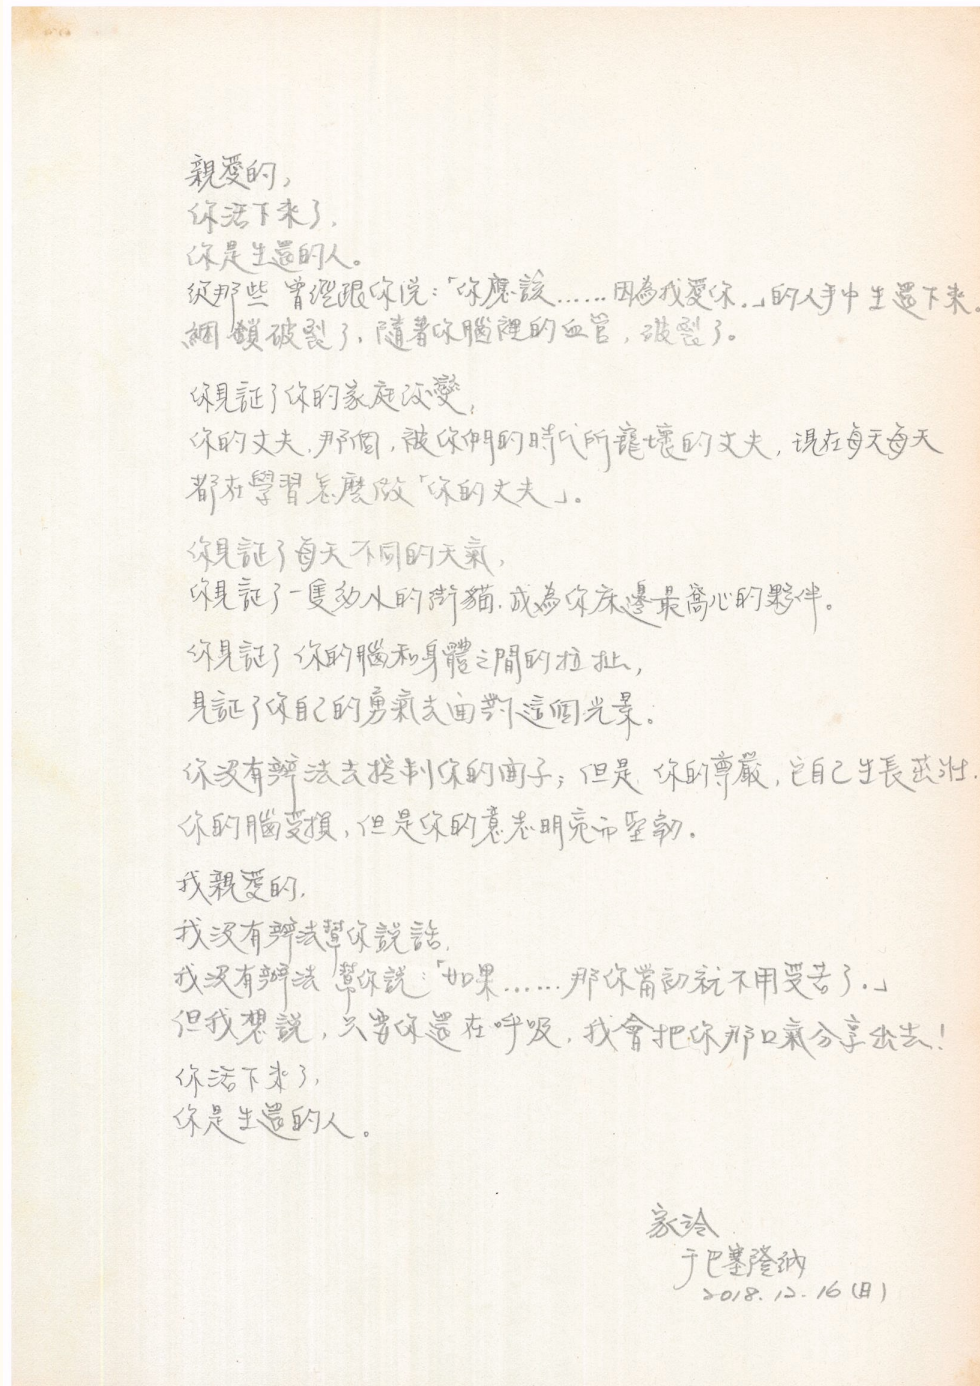 親愛的，
你活下來了，
你是生還的人。
從那些曾經跟你說：「你應該……因為我愛你。」的人手中生還下來。
綑鎖破裂了，隨著你腦裡的血管，破裂了。
你見証了你的家庭改變，
你的丈夫，那個，被你們的時代所寵壞的丈夫，現在每天每天
都在學習怎麼做「你的丈夫」。
你見証了每天不同的天氣，
你見証了一隻幼小的街貓，成為你床邊最窩心的夥伴。
你見証了你的腦和身體之間的拉扯，
見証了你自己的勇氣去面對這個光景。
你沒有辦法去控制你的面子；但是，你的尊嚴，它自己生長茁壯，
你的腦受損，但是你的意志明亮而堅韌。
我親愛的，
我沒有辦法幫你說話，
我沒有辦法幫你說：「如果……那你當初就不用受苦了。」
但我想說，只要你還在呼吸，我會把你那口氣分享出去！
你活下來了，
你是生還的人。
家泠
于巴塞隆納
2018.12.16(日)